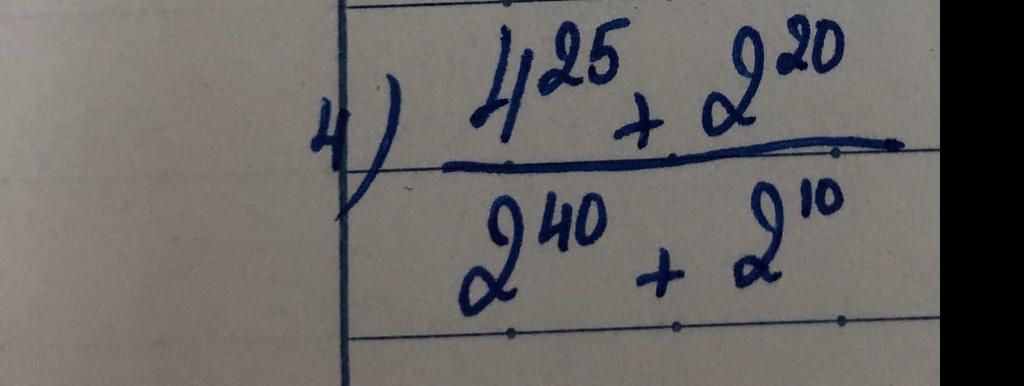 4) 4^25 + 2^20
2^40 + 2^10